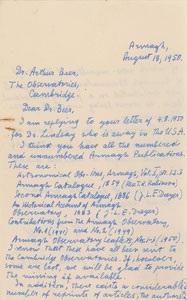 Armagh,
August 18, 1950.
Dr. Arthur Beer,
The Observatories,
Cambridge.
Dear Dr. Beer,
I am replying to your letter of 4.8.1950
for Dr. Lindsay who is away in the U.S.A.
I think you have all the numbered
and unnumbered Armagh Publications.
These are:
Astronomical Obs. Armagh, Vol. I,
Armagh Catalogue, 1859 (Rev. T. R. Robinson)
Second Armagh Catalogue, 1886 (J. L. E. Dreyer)
An Historical Account of Armagh
Observatory, 1883 (J. L. E. Dreyer)
Contributions from the Armagh Observatory,
No. 1 and No. 2 (1949)
Armagh Observatory Leaflet
I know that these have all been sent to
the Cambridge Observatories. If, however,
some are lost, we will be glad to provide
the number if available.
In addition, there exists a considerable
number of reprints of articles, the authors